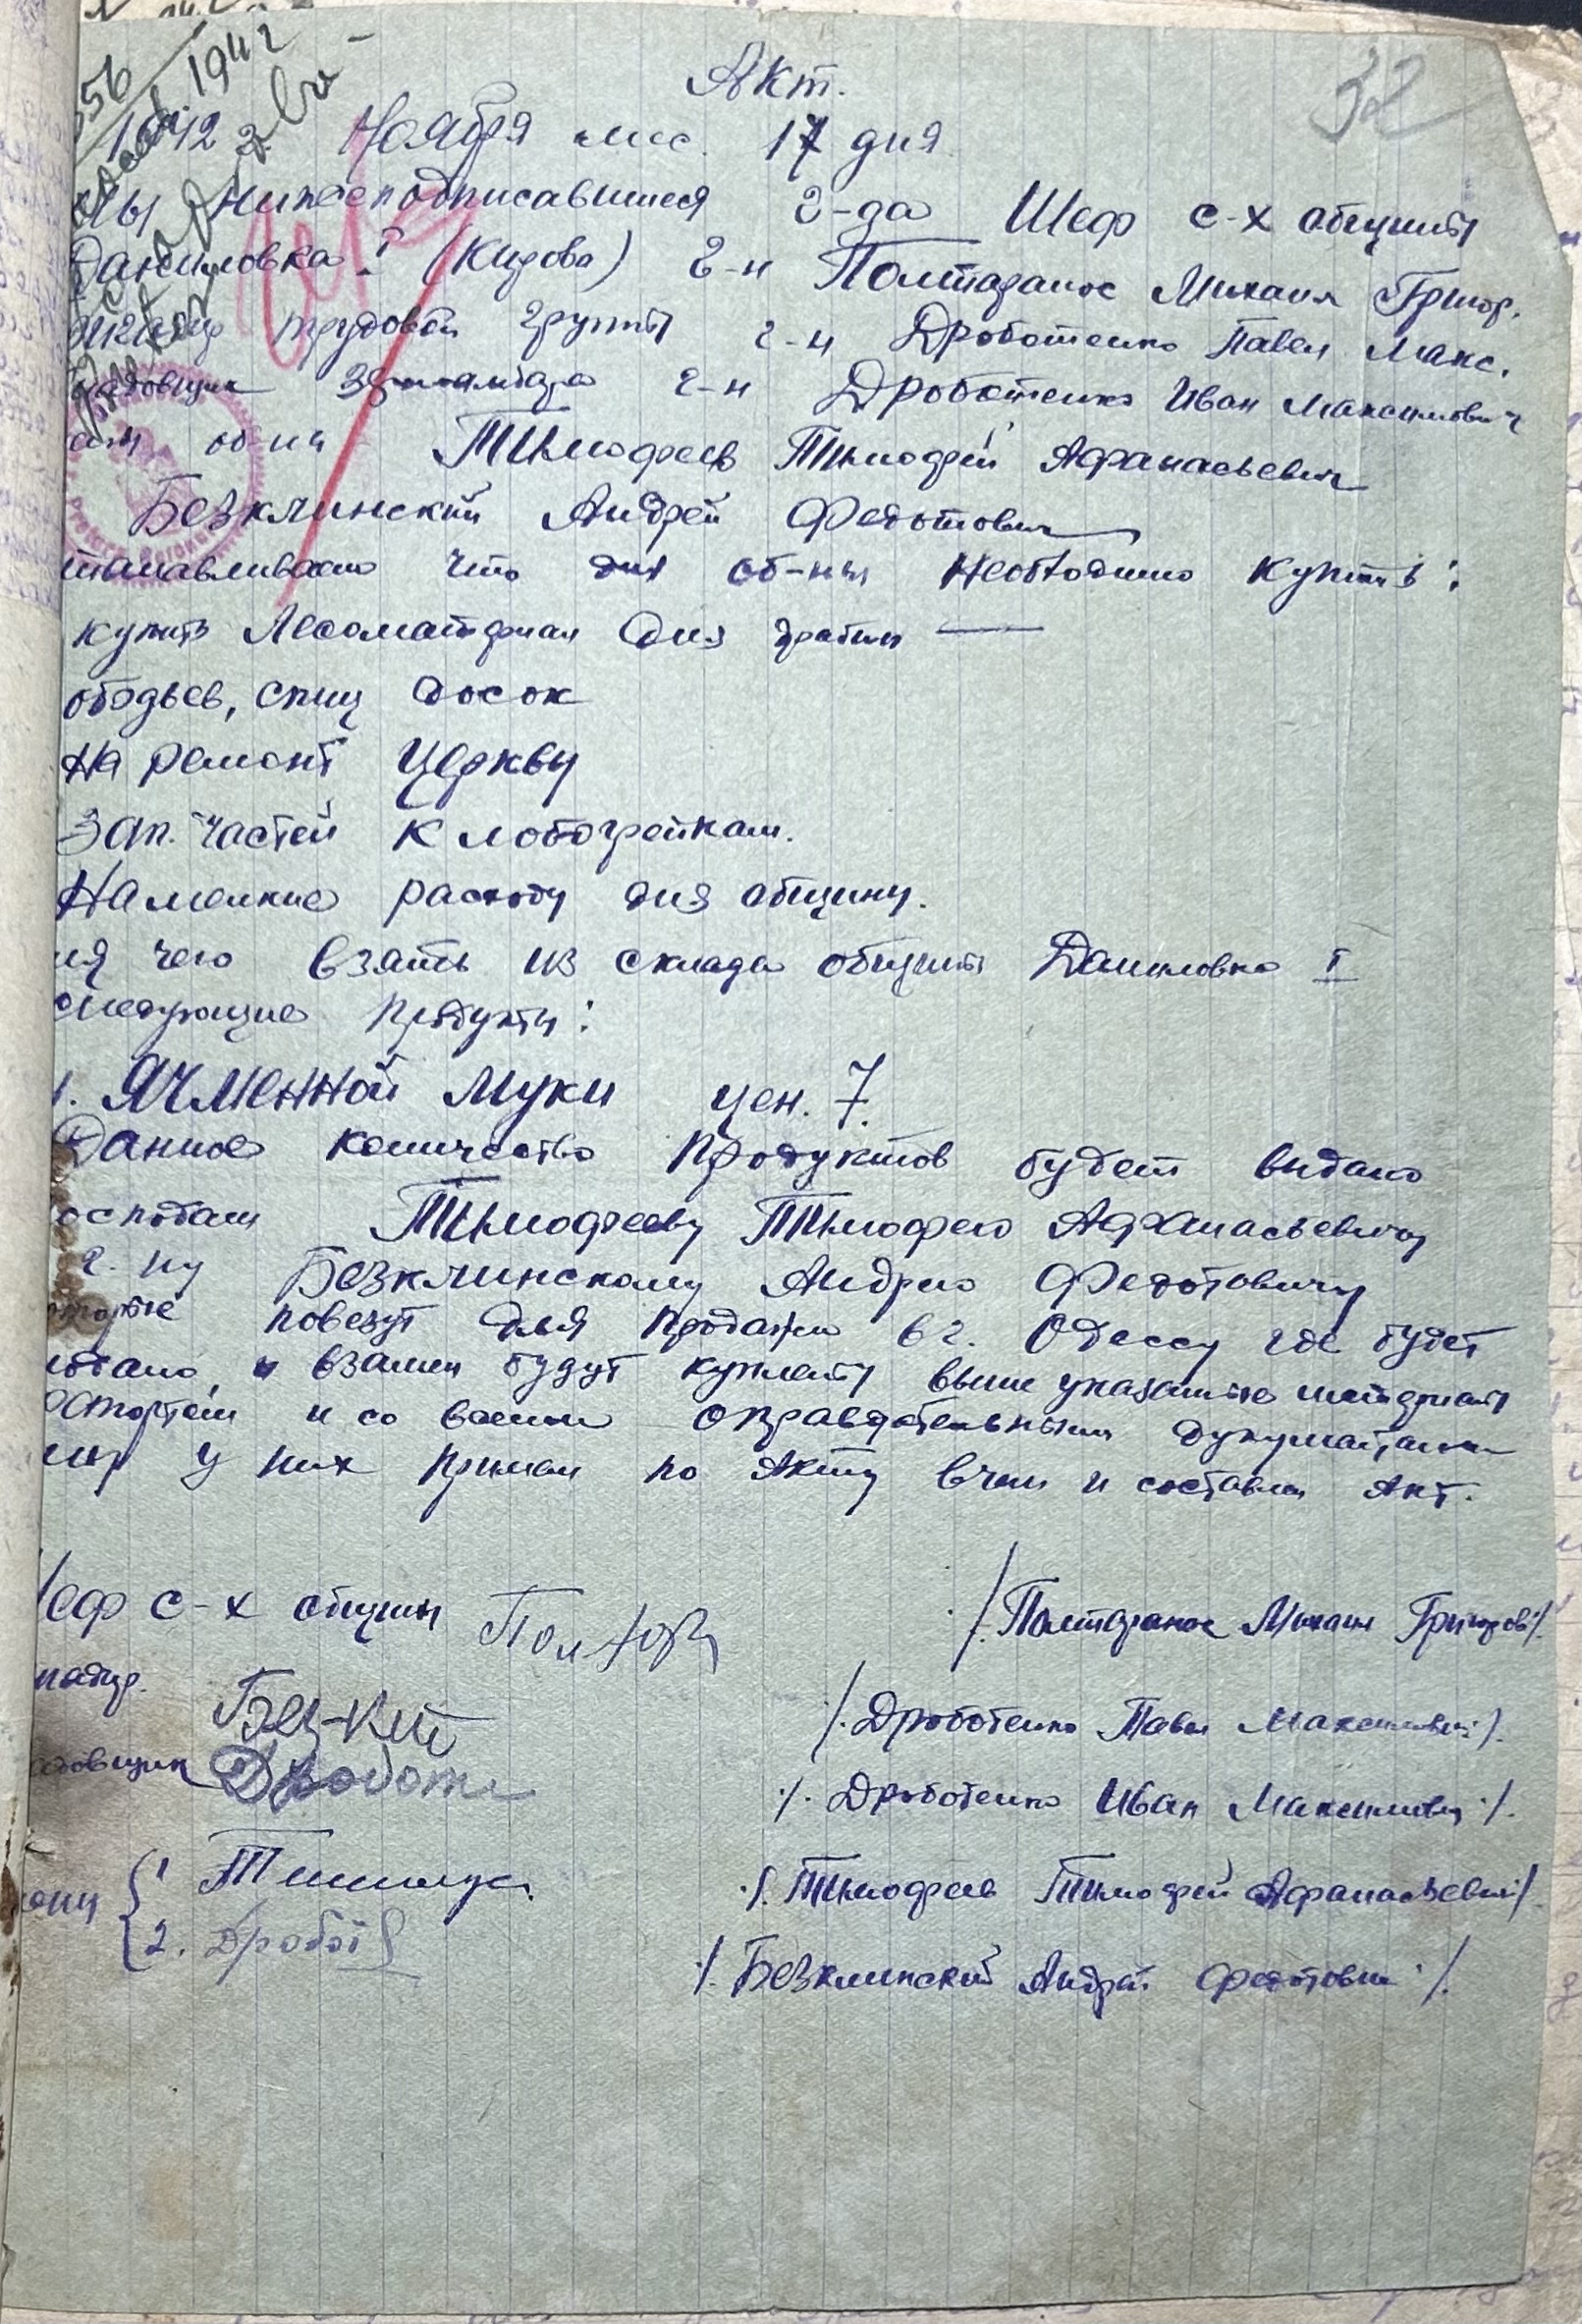 32
1942
Акт.
1942 Ноября мес. 17 дня
мы нижеподписавшиеся г-да Шеф с-х общины
Даниловка I (Кирова) г-н Михаил Григор.
трудовой группы г-н Дроботенко Павел Макс.
г-н Дроботенко Иван Максимович
об-ни Тимофеев Тимофей Афанасьевич
Безклинский Андрей Федотович
танавливаем что для об-ны необходимо купить:
купить Лесоматериал для
ободьев, спиц досок
На ремонт Церкву
Зап. частей к лобогрейкам.
На мелкие расходу для общину.
ля чего взять из склада общины Даниловка I
следующие продукты:
1. ячменной муки цен. 7.
Данное количество продуктов будет видано
осподам Тимофееву Тимофею Афанасьевичу
г-ну Безклинскому Андрею Федотовичу
оторые повезут для продажи в г. Одессу где будет
и взамен будут куплены выше указанные материалы
и со всеми оправдательными
у них примем по акту в чем и составлен акт.
еф с-х общины /. Михаил Григоров./.
/. Дроботенко Павел Максимович ./.
адовщик /. Дроботенко Иван Максимович ./.
1 /. Тимофеев Тимофей Афанасьевич ./.
2. /. Безклинский Андрей Федотович ./.